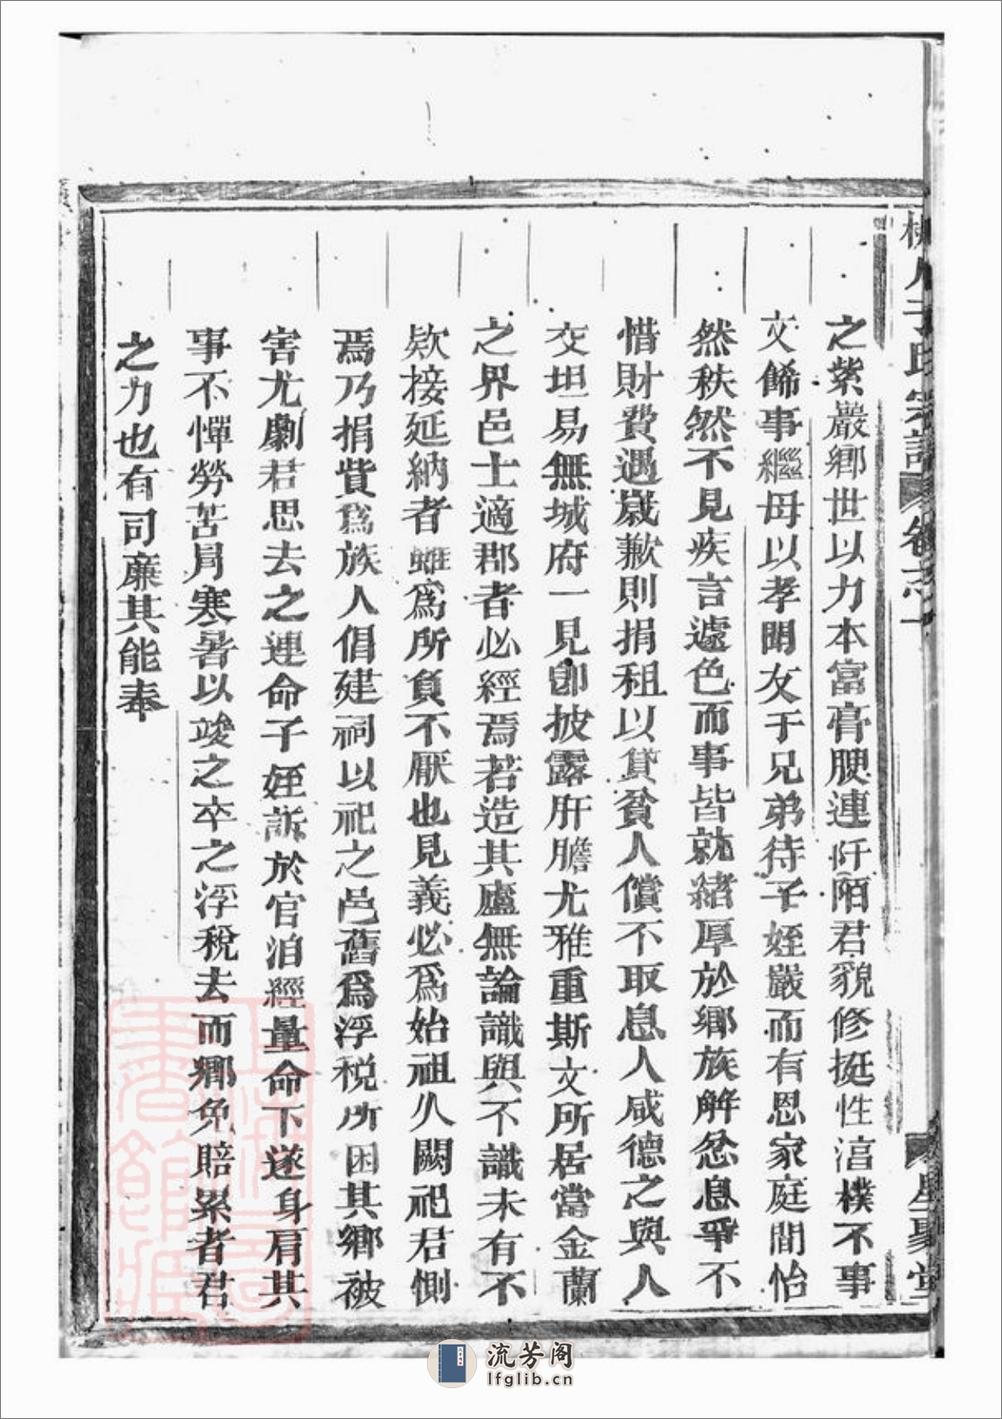 之紫巖鄉世以力本富膏腴連阡陌君貌修挺性湻樸不事
文餙事繼母以孝聞友于兄弟待子姪嚴而有恩家庭間怡
然秩然不見疾言遽色而事皆就緒厚於鄉族解忿息爭不
惜財費遇歲歉則捐租以貸貧人償不取息人咸德之與人
交坦易無城府一見卽披露肝膽尤雅重斯文所居當金蘭
之界邑士適郡者必經焉若造其廬無論識與不識未有不
欵接延納者雖爲所負不厭也見義必爲始祖久闕祀君惻
焉乃捐貲爲族人倡建祠以祀之邑舊爲浮稅所困其鄉被
害尤劇君思去之連命子姪訴於官洎經量命下遂身肩其
事不憚勞苦冐寒暑以竣之卒之浮稅去而鄉免賠累者君
之力也有司亷其能奉
氏宗譜 卷之一
星聚堂
流芳阁
lfglib.cn